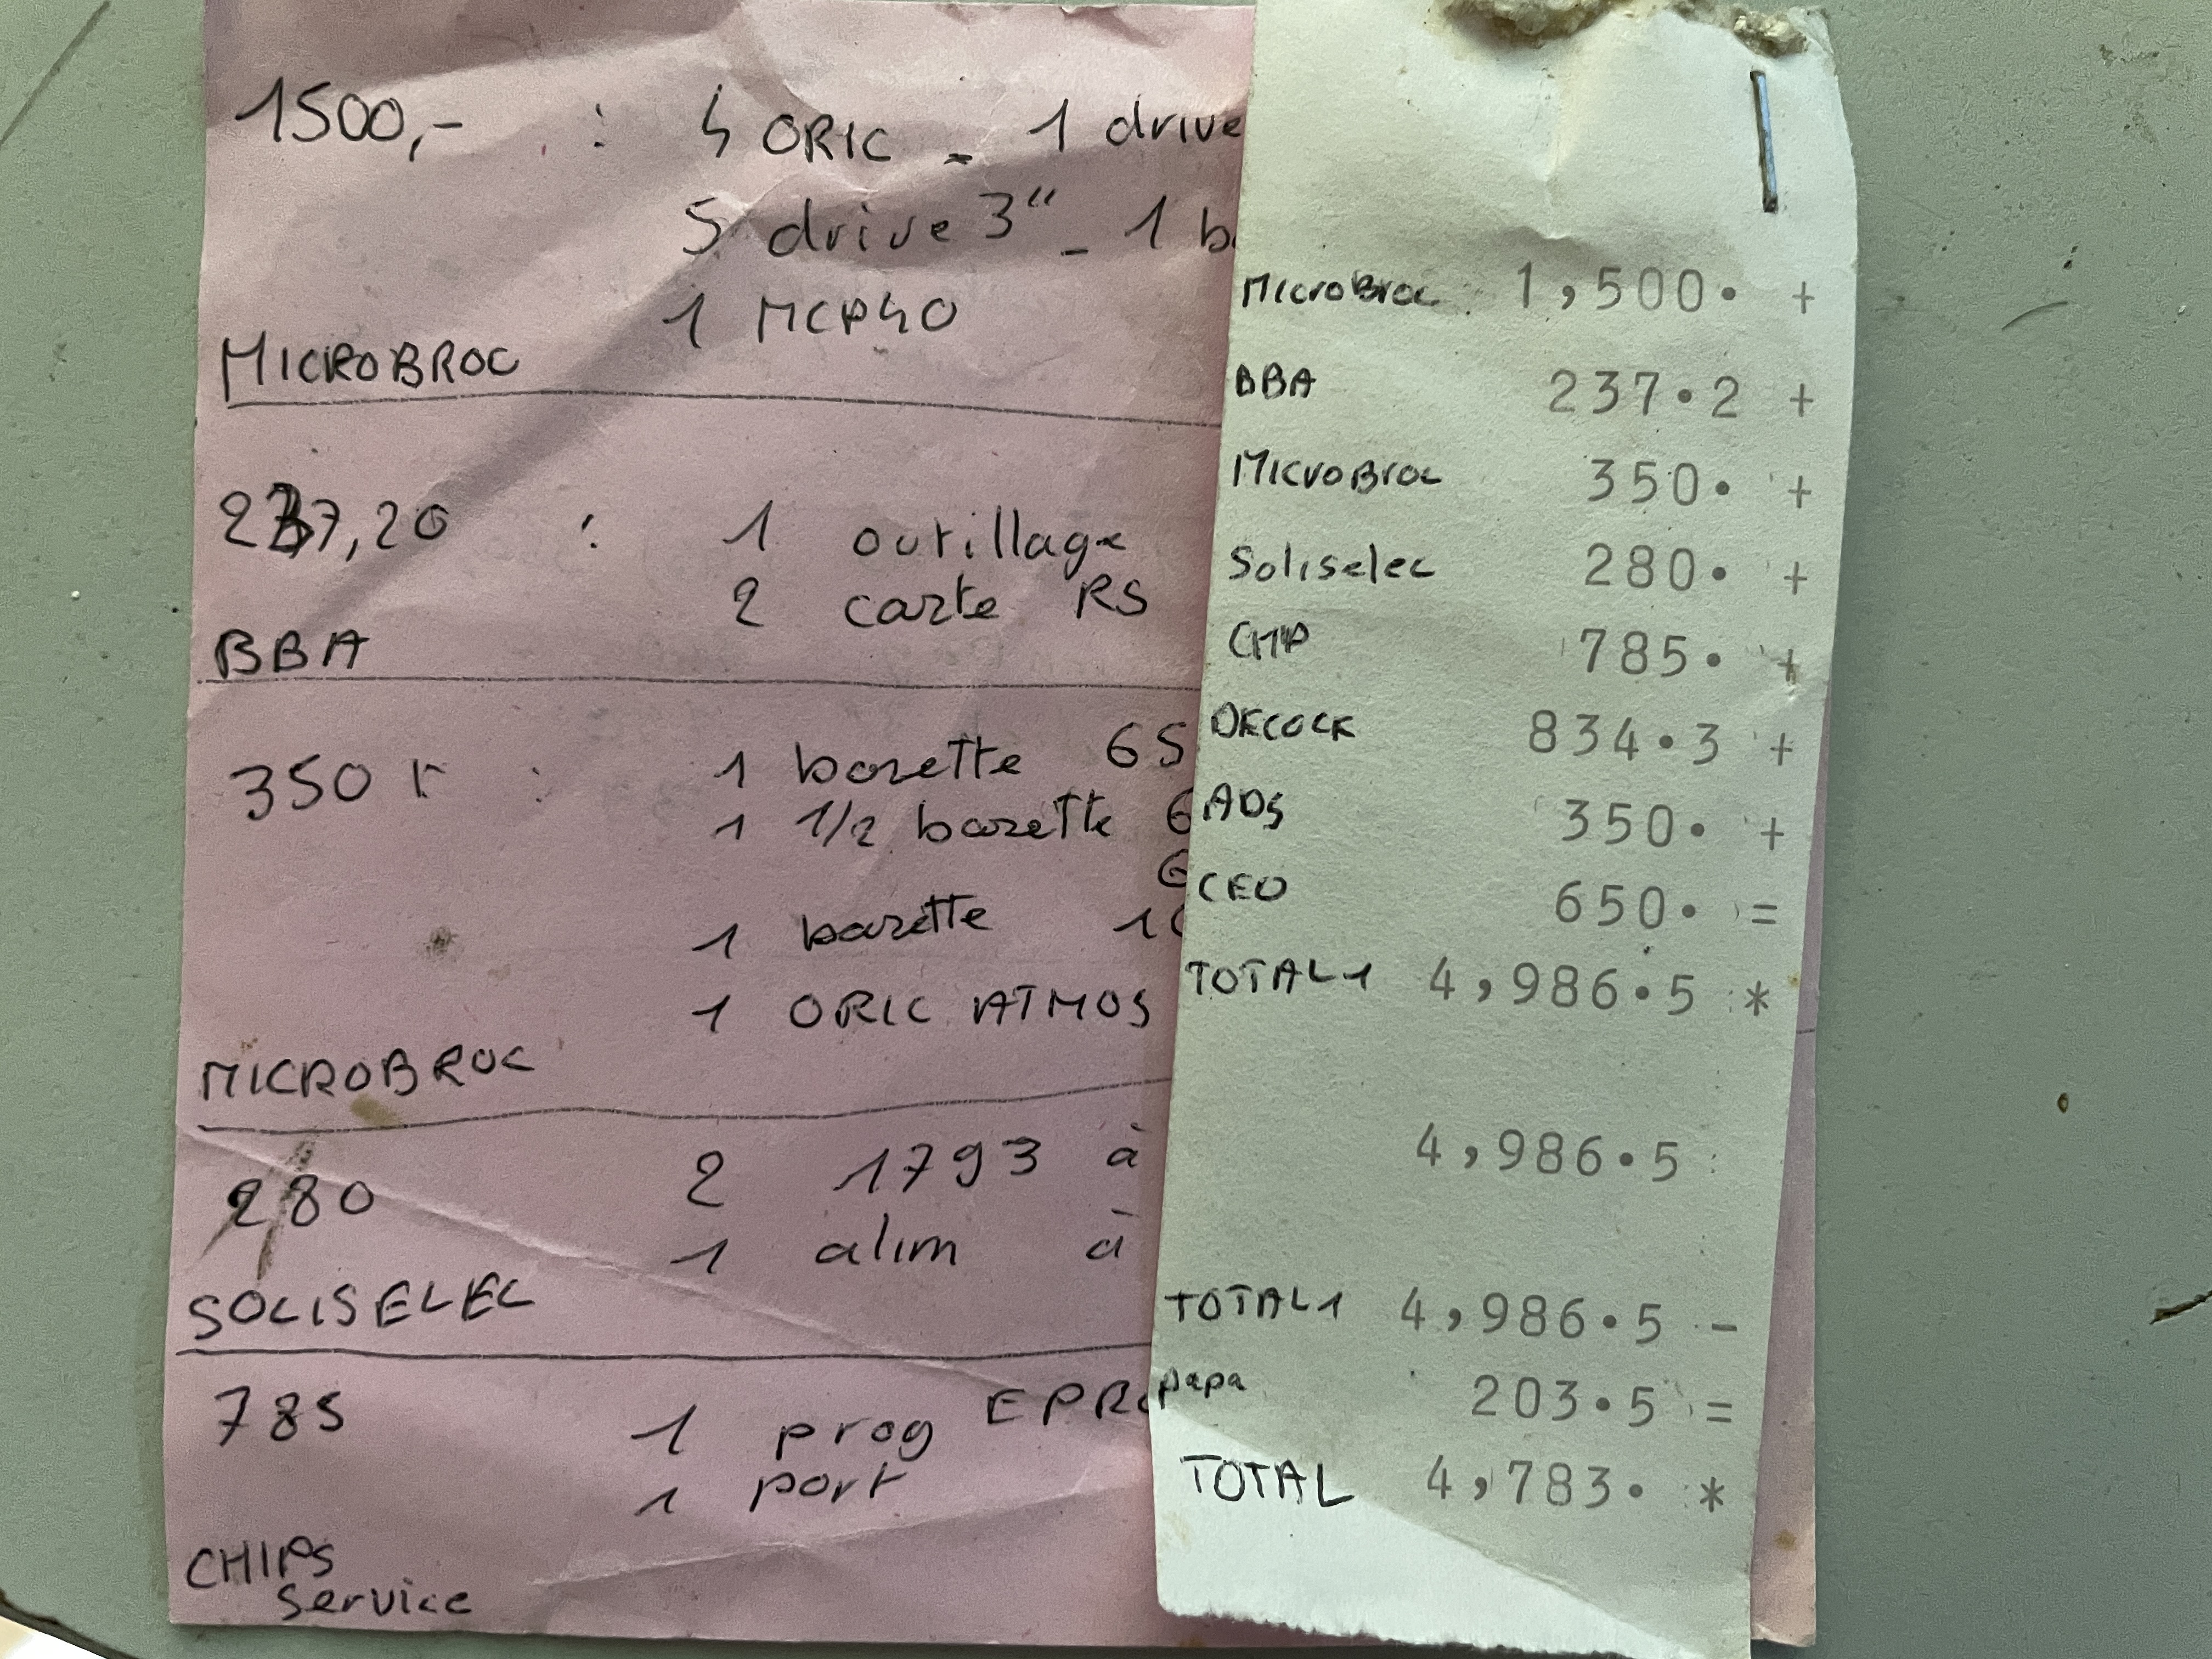 1500,- : 4 ORIC - 1 drive
5 drive 3" - 1
1 MCP40
MICROBROC
237,20 : 1 outillage
2 carte RS
BBA
350 F : 1 barette 65
1 1/2 barette 6
6
1 barette
1 ORIC ATMOS
MICROBROC
280 2 1793 à
1 alim à
SOLISELEC
785 1 prog
1 port
CHIPS
Service
MicroBroc 1,500. +
BBA 237.2 +
MicroBroc 350. +
Soliselec 280. +
CHP 785. +
DECOCK 834.3 +
ADS 350. +
CEO 650. =
TOTAL1 4,986.5 *
4,986.5
TOTAL1 4,986.5 -
papa 203.5 =
TOTAL 4,783. *